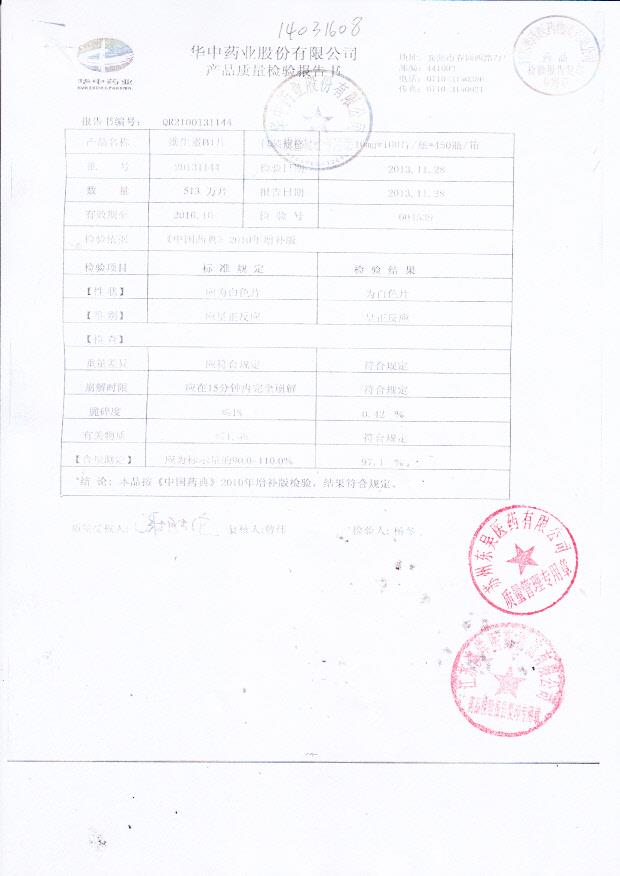 14031608
华中药业
华中药业股份有限公司
产品质量检验报告书
报告书编号: QR2100131144
产品名称 维生素B1片 10mg*100片/瓶*450瓶/箱
批 号 20131144 检验日期 2013.11.28
数 量 513 万片 报告日期 2013.11.28
有效期至 2016.10 检 验 号
检验依据 《中国药典》2010年增补版
检验项目 标 准 规 定 检 验 结 果
【性 状】 应为白色片 为白色片
【鉴 别】 应呈正反应 呈正反应
【检 查】
重量差异 应符合规定 符合规定
崩解时限 应在15分钟内完全崩解 符合规定
脆碎度 ≤1% 0.42 %
有关物质 符合规定
【含量测定】 应为标示量的90.0-110.0% 97.1 %
结 论: 本品按《中国药典》2010年增补版检验, 结果符合规定。
质量受权人: 复核人: 检验人:
苏州东吴医药有限公司
质量管理专用章